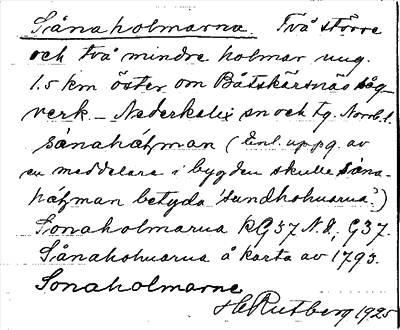 Sånaholmarna. Två större
och två mindre holmar ung.
1.5 km öster om Båtskärsnäs såg-
verk. – Nederkalix sn och tg. Norrb. l.
sánahátman (Enl. uppg. av
en meddelare i bygden skulle sána-
hátman betyda 'sandholmarna'.)
Sonaholmarna RG37 N.8, G37.
Sånaholmarna å karta av 1793.
Sonaholmarne
H Rutberg 1925